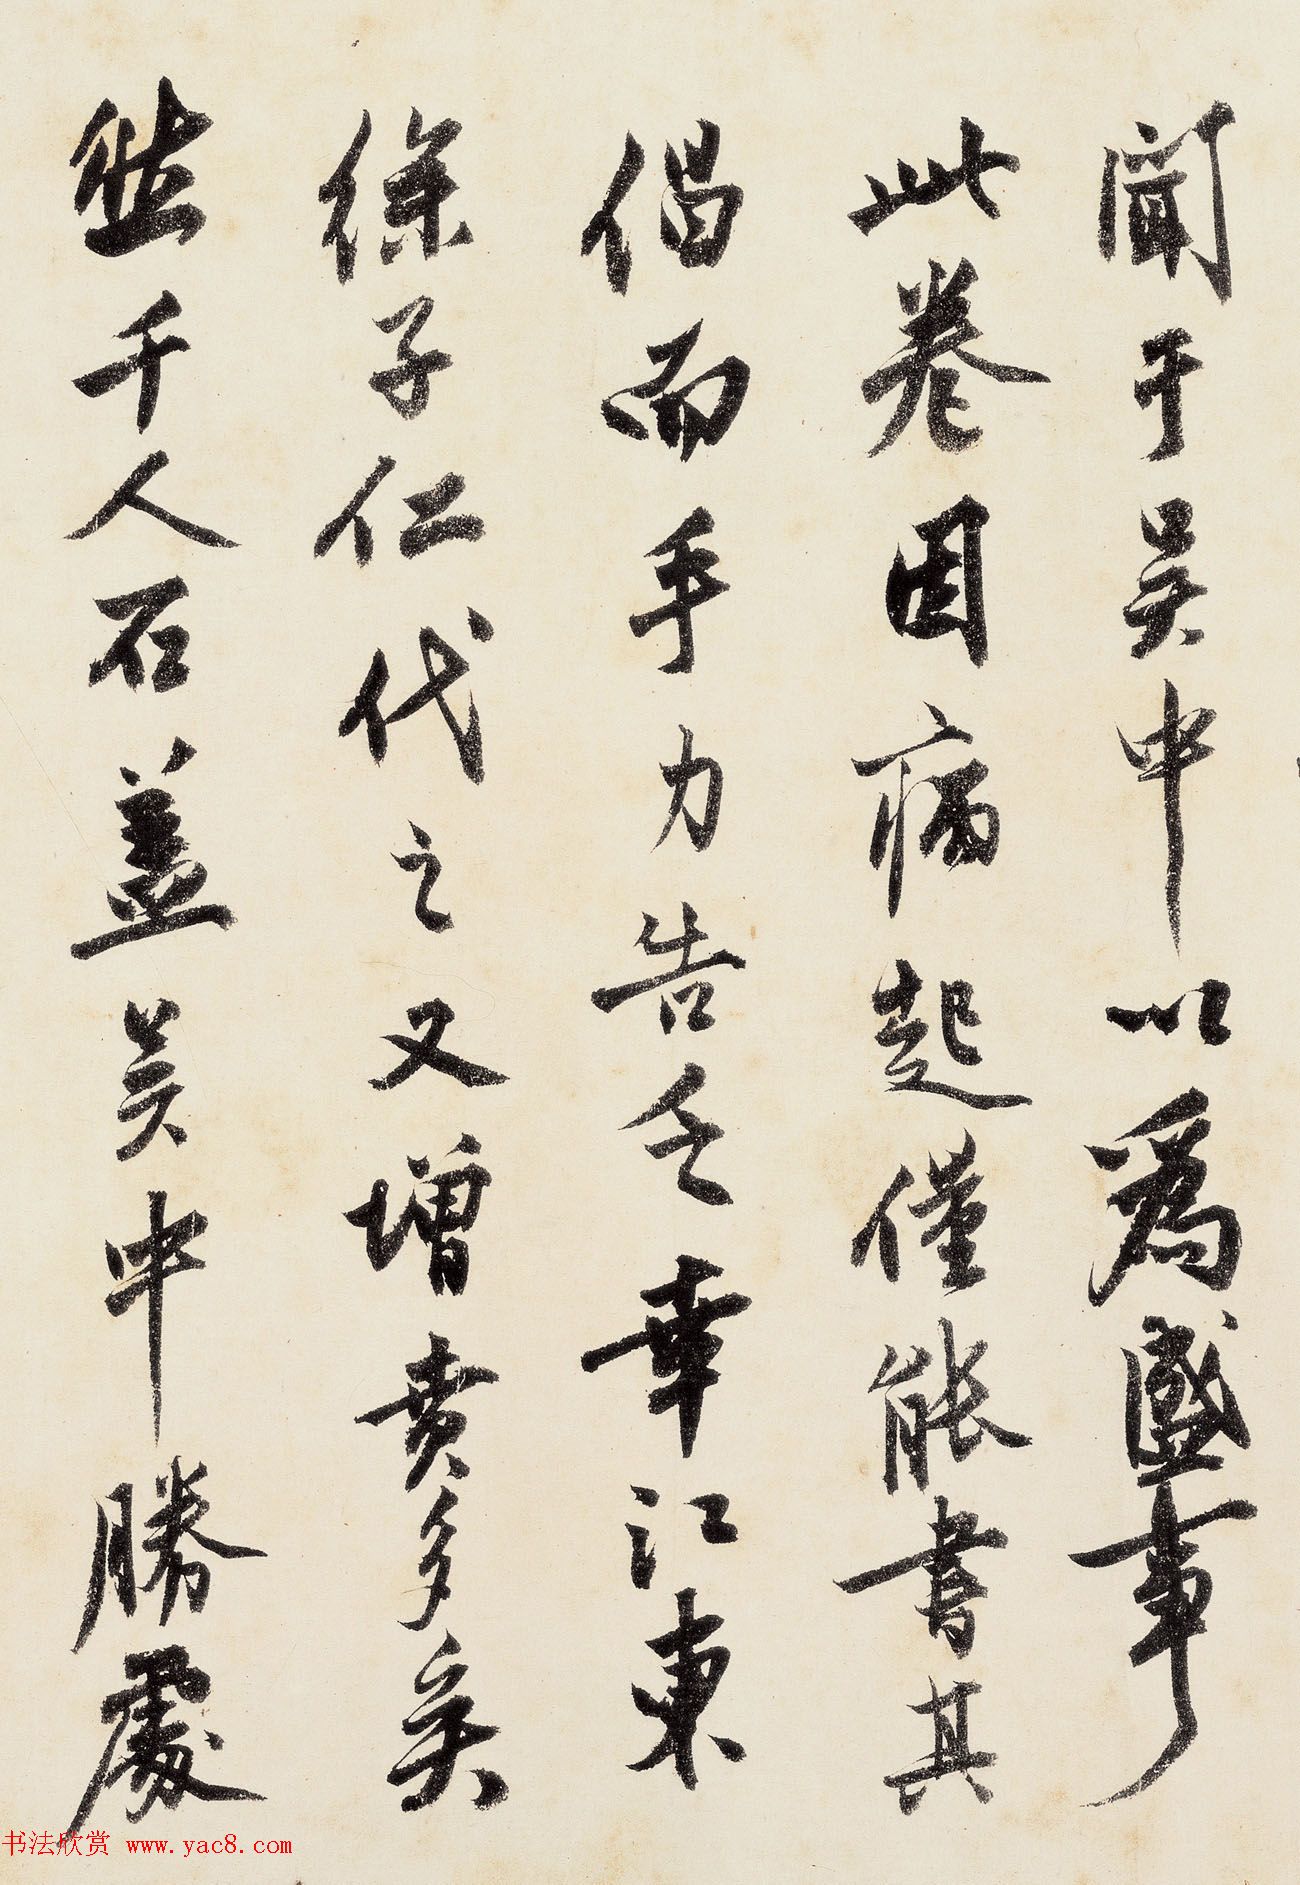 聞于吳中以為盛事
此卷因病起僅能書其
倡而手力告乏幸江東
徐子仁代之又增賁多矣
然千人石蓋吳中勝處
书法欣赏 www.yac8.com